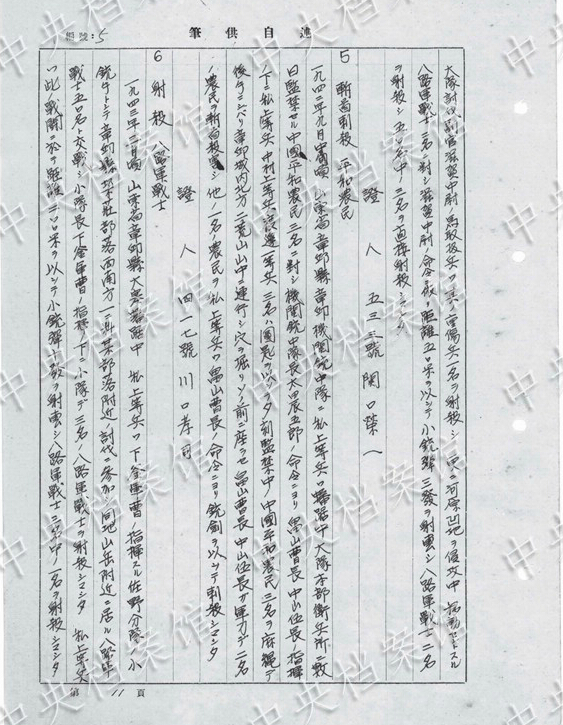 編號：5
筆供自述
大隊討伐副官滋賀中尉 馬取後兵ワ一名ノ重傷兵一名ヲ射殺シ 更ニ河原凹地ヲ侵攻中
八路軍戦士三名ニ対シ滋賀中尉ノ命令ニ依リ距離五〇米ヲ以シテ小銃弾三発ヲ射撃シ八路軍戦士二名
ヲ射殺シ五〇名中 三名ヲ直接射殺シマシタ
證人 五三三號 関口榮一
5 斬首刺殺 平和農民
一九四二年九月中旬頃 山東省章邱縣章邱機関銃中隊ニ私上等兵ワ駐留中 大隊本部衛兵所ニ数
日監禁セル中國平和農民三名ニ対シ機関銃中隊長太田辰五郎ノ命令ニヨリ 畠山曹長 中山伍長ノ指揮
ノ下ニ私上等兵 中村上等兵 渡邊一等兵 三名ハ 監禁中ノ中國平和農民三名ヲ麻縄デ
後タニシバリ章邱城内北方ニ 山中ニ連行シ穴ヲ掘リソノ前ニ座ラセ畠山曹長 中山伍長ガ軍刀デ二名
ノ農民ヲ斬首殺害シ 他ノ一名ノ農民ヲ私上等兵ワ畠山曹長ノ命令ニヨリ 銃剣ヲ以シテ刺殺シマシタ
證人 四一七號 川口孝司
6 射殺 八路軍戦士
一九四三年二月頃 山東省章邱縣 駐留中 私上等兵ワ下釜軍曹ノ指揮スル佐野分隊ノ小
銃手トシテ章邱縣 荘部落西南方 某部落附近ノ討伐ニ参加シ 同地山岳附近ニ居ル八路軍
戦士五〇名ト交戦シ小隊長下釜軍曹ノ指揮ノ下ニ小隊デ三名ノ八路軍戦士ヲ射殺シマシタ 私上等兵
ワ此ノ戦闘ニ於テ距離二〇〇米ヲ以シテ小銃弾十発ヲ射撃シ八路軍戦士三名中ノ一名ヲ射殺シマシタ
第 11 頁
中央档案馆